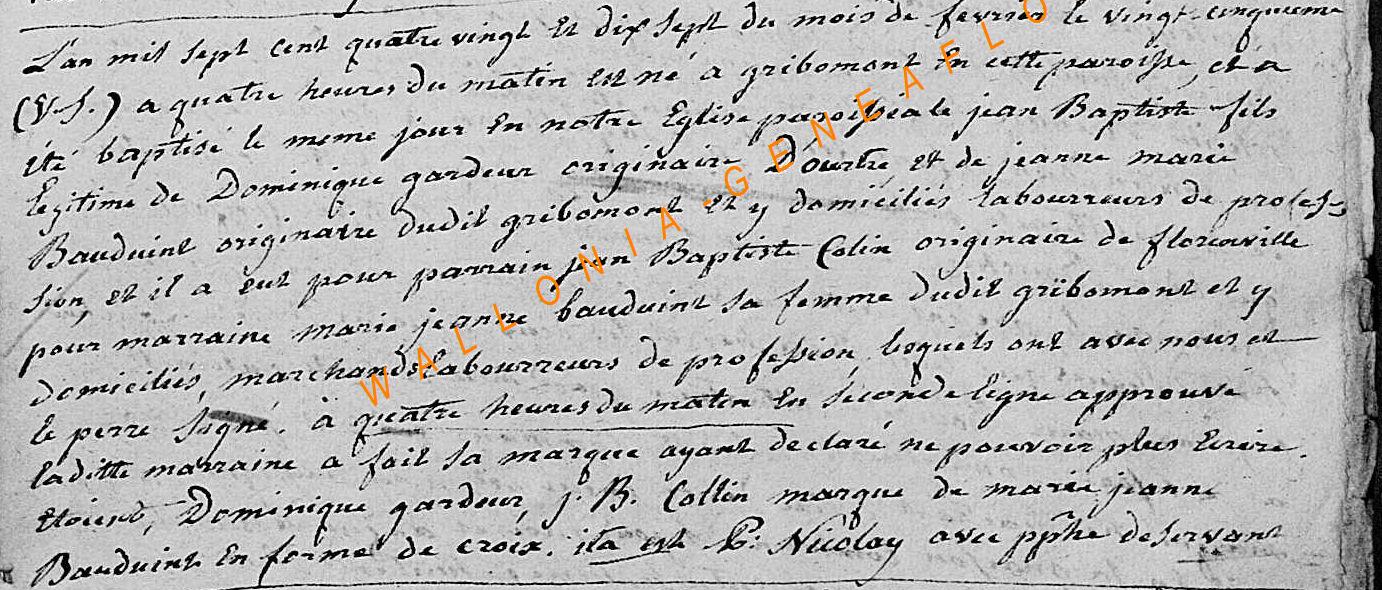 L'an mil sept cent quatre vingt et dix sept du mois de fevrier le vingt-cinquieme
(V.S.) a quatre heures du matin est né a gribomont en cette paroisse, et a
été baptisé le meme jour en notre Eglise paroissiale jean Baptiste fils
legitime de Dominique gardeur originaire D'ourtre et de jeanne marie
Bauduint originaire dudit gribomont et y domiciliés labourreurs de profes-
sion, et il a eut pour parrain jean Baptiste Colin originaire de florenville
pour marraine marie jeanne bauduint sa femme dudit gribomont et y
domiciliés, marchands labourreurs de profession lesquels ont avec nous et
le perre signé. à quatre heures du matin en seconde ligne approuvé
laditte marraine a fait sa marque ayant declaré ne pouvoir plus Ecrire.
etoient, Dominique gardeur, j. B. Collin marque de marie jeanne
Bauduint en forme de croix. ita est Nicolay avec desservant
WALLONIA-GENEAFLO